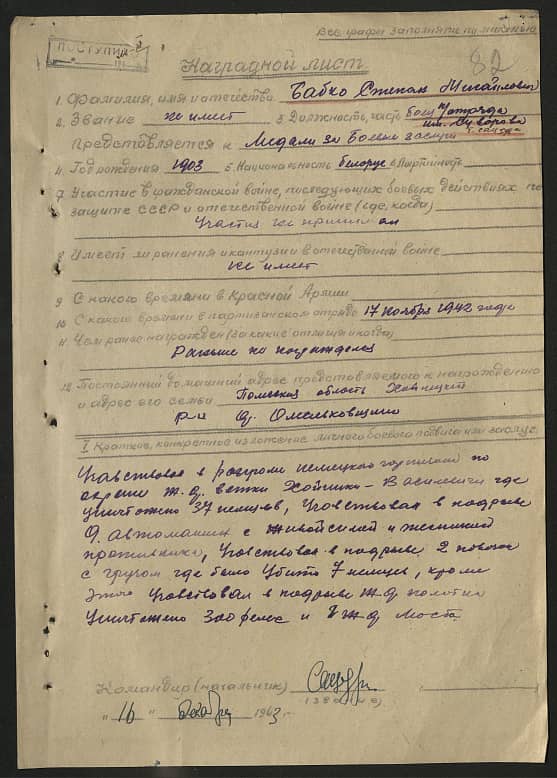 Все графы заполнять полностью
ПОСТУПИЛ
82
Наградной лист
1. Фамилия, имя и отчество Бабко Степан Михайлович
2. Звание не имеет 3. Должность, часть боец п/отряда
им. Суворова
Представляется к Медали за Боевые заслуги
4. Год рождения 1903 5. Национальность белорус 6. Партийность
7. Участие в гражданской войне, последующих боевых действиях по
защите СССР и отечественной войне (где, когда)
Участия не принимал
8. Имеет ли ранения и контузии в отечественной войне
не имеет
9. С какого времени в Красной Армии
10. С какого времени в партизанском отряде 17 ноября 1942 года
11. Чем ранее награжден (за какие отличия и когда)
Раньше не награждался
12. Постоянный домашний адрес представляемого к награждению
и адрес его семьи Полесская область Хойницкий
р-н д. Омельковщина
I. Краткое, конкретное изложение личного боевого подвига или заслуг
Учавствовал в разгроме немецкого гарнизона по
охране ж.д. ветки Хойники - Василевичи где
уничтожено 37 немцев, Учавствовал в подрыве
9 автомашин с живой силой и техникой
противника, Учавствовал в подрыве 2 повозок
с грузом где было убито 7 немцев, кроме
этого Учавствовал в подрыве ж.д. полотна
Уничтожено и ж.д моста
Командир (начальник)
(звание)
"16" декабря 1943 г.